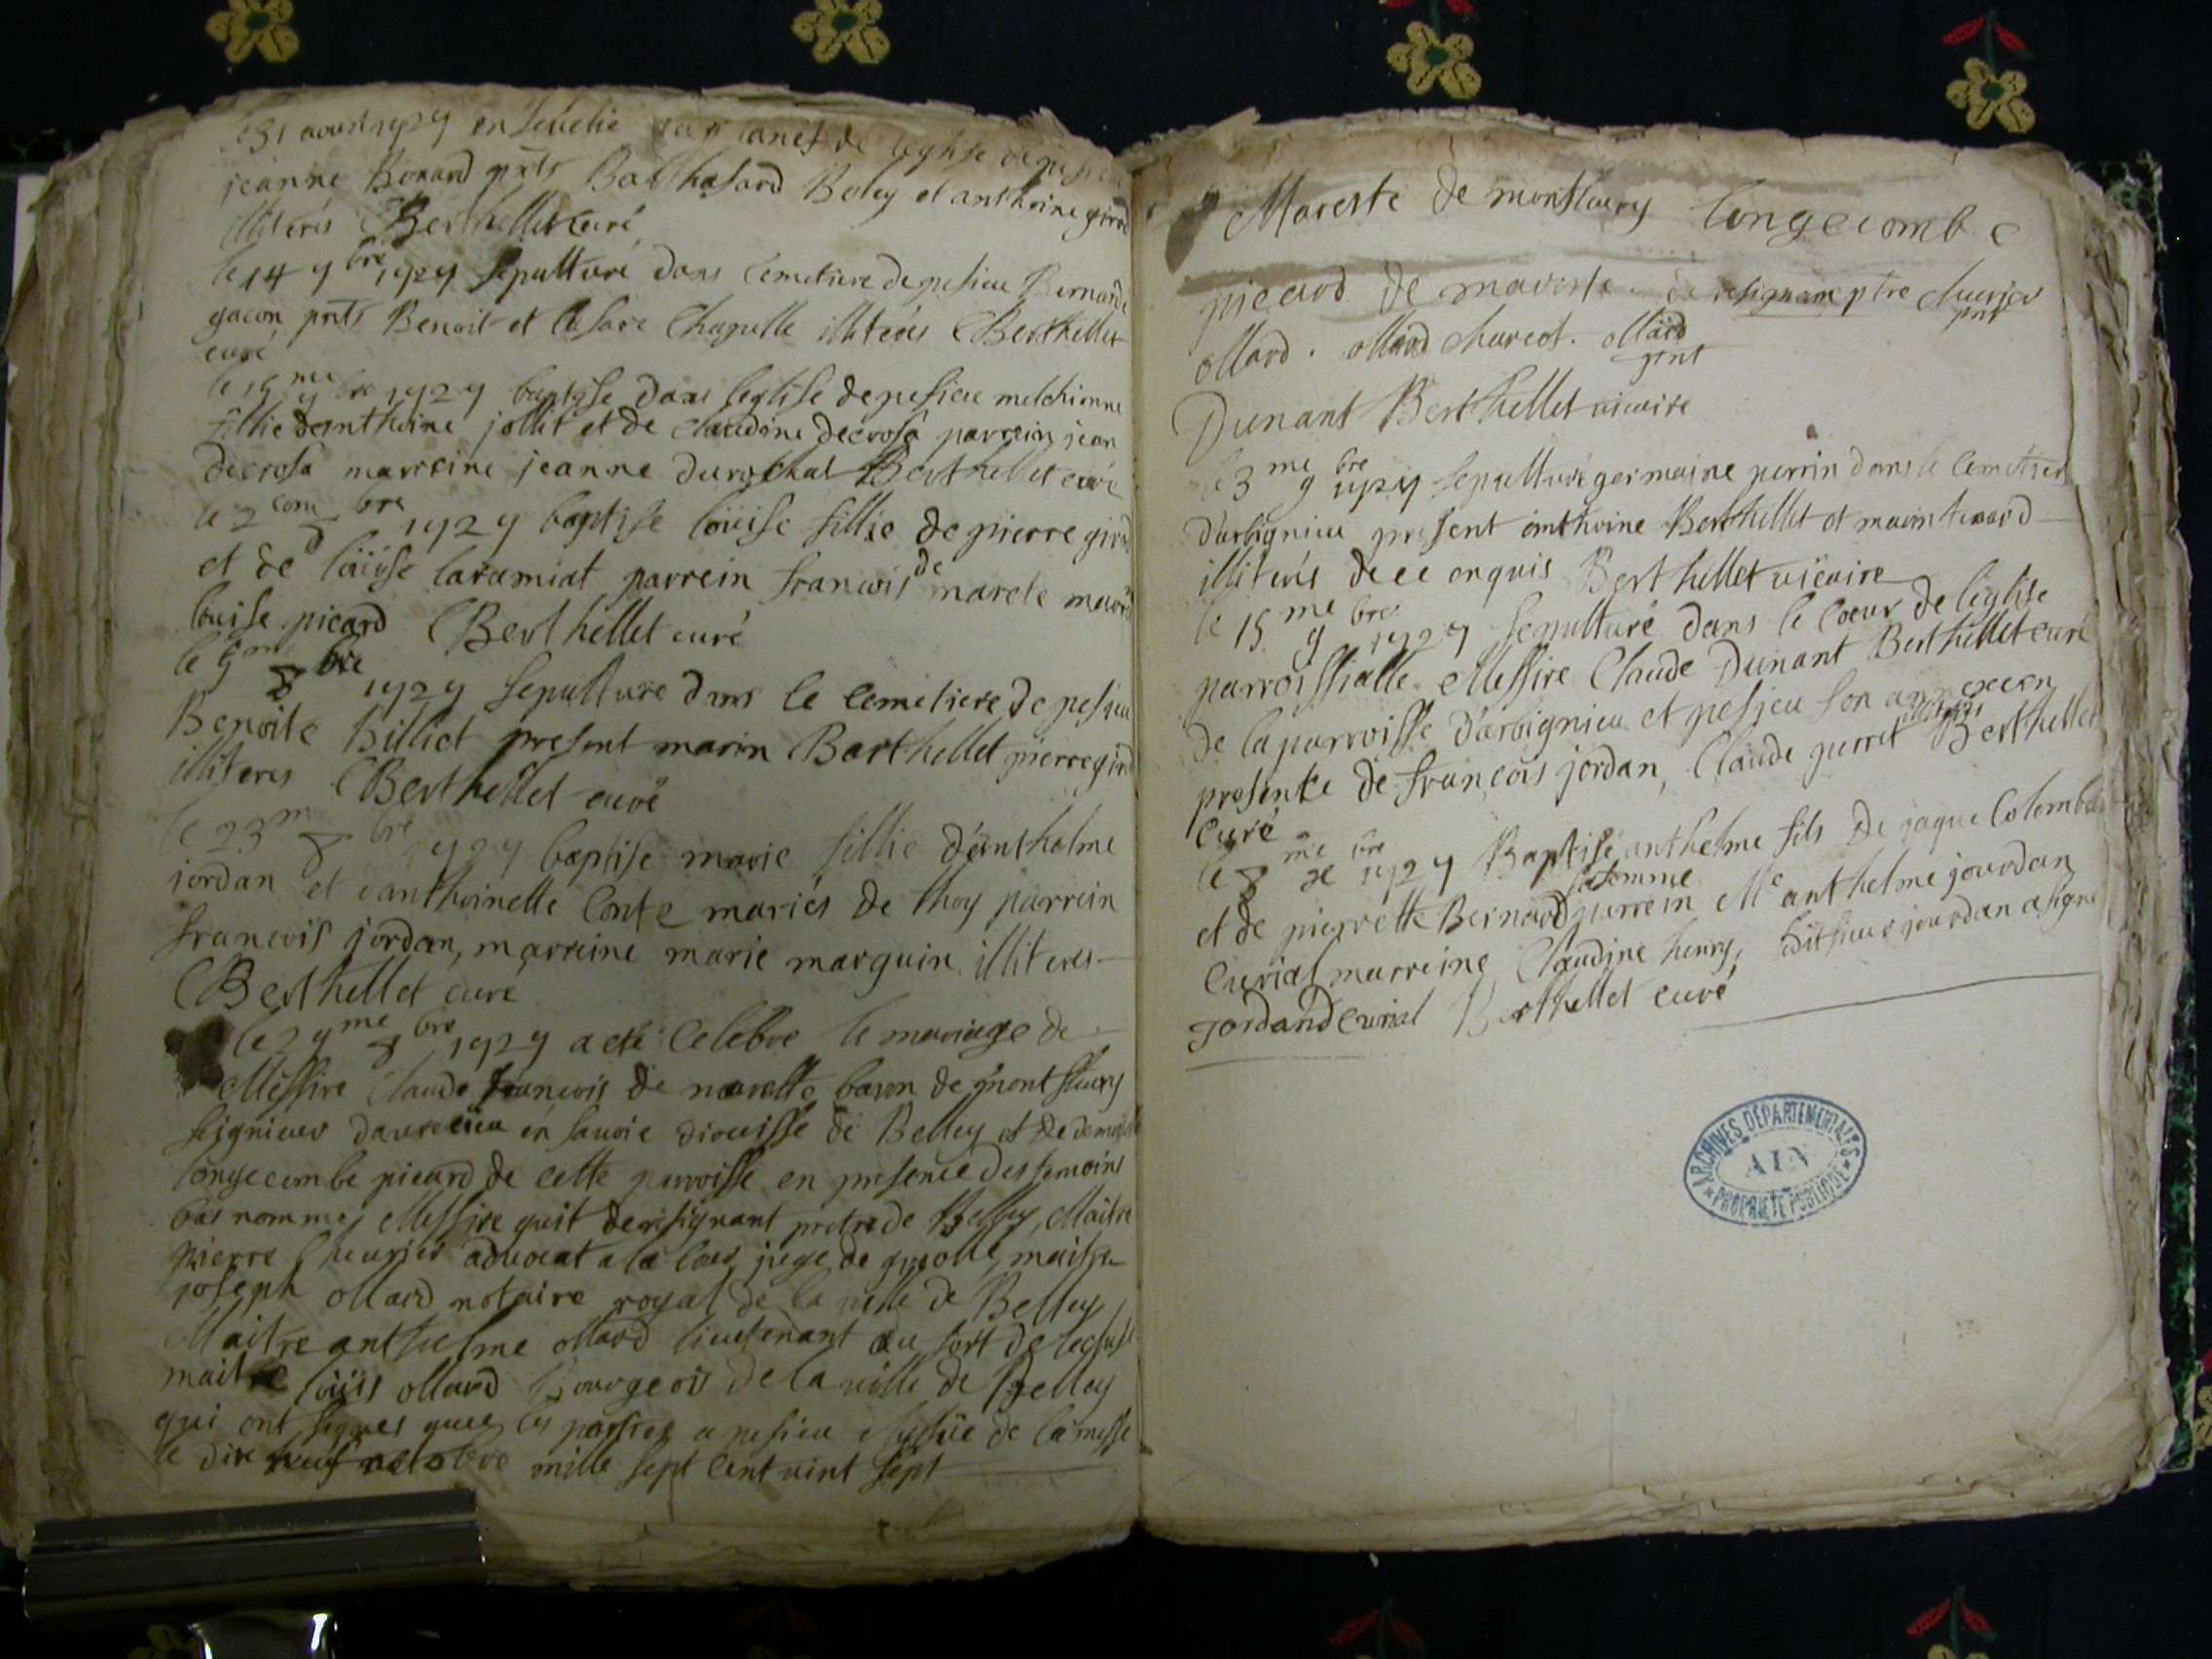 le 31 aoust 1727 ensevelie dans la nef de leglise de pesieu
jeanne Bonard pnts Balthasard Beley et anthoine girod
illiterés Berthellet curé
le 14 9bre 1727 sepulturé dans cemetiere de pesieu Bernarde
gacon pnts Benoit et Chapelle illiterés Berthellet
curé
le 15me 9bre 1727 baptise dans leglise de pesieu melchionne
fillie danthoine jollit et de claudine decrosa parrein jean
decrosa marreine jeanne durochat Berthellet curé
le 2 bre 1727 baptise loüise fillie de pierre
et de loüise laramiat parrein francois de
louise picard Berthellet curé
le 9me 8bre
1727 sepulture dans le cemetiere de pesieu
Benoite Billiet present marin Barthellet pierre
illiteres Berthellet curé
le 23m 8bre 1727 baptise marie fillie d'anthelme
jordan et danthoinette Conte mariés de thoy parrein
francois jordan, marreine marie marguin illiteres
Berthellet curé
le 29me 8bre 1727 a eté celebre le mariage de
Messire Claude francois de mareste baron de montfleury
seignieur en savoie diouisse de Belley et de
longecombe picard de cette parroisse en presence des temoins
bas nommes Messire guit de resignant pretre de Belley, Maitre
pierre cheurier advocat a la cour juge de maitre
joseph ollard notaire royal de la ville de Belley
Maitre anthelme ollard lieutenant au fort de lecluse
maitre loüis ollard Bourgeois de la ville de Belley
qui ont signes avec les parties a pesieu a lissüe de la messe
le dix neuf octobre mille sept cent vint sept
Mareste de montfleury longecombe
picard de mareste de resignan ptre cheurier
pnt
ollard . ollard churcot . ollard
pnt
Dunant Berthellet vicaire
le 3me 9bre 1727 sepulturé germaine perrin dans le cemetier
d'arbignieu present anthoine Berthellet et
illiterés de ce enquis Berthellet vicaire
le 15me 9bre 1727 sepulturé dans le coeur de leglise
parroissialle Messire Claude Dunant Berthellet curé
de la parroisse d'arbignieu et pesieu son annexe en
presente de françois jordan, Claude perret illiterés Berthellet
curé
le 8me xbre 1727 Baptisé anthelme fils de jaque Colomb
et de pierrette Bernard sa femme parrein Me anthelme jourdan
curial marreine Claudine henry, ledit sieur jourdan a signé
jordand curial Berthellet curé
ARCHIVES DEPARTEMENTALES
AIN
PROPRIETE PUBLIQUE